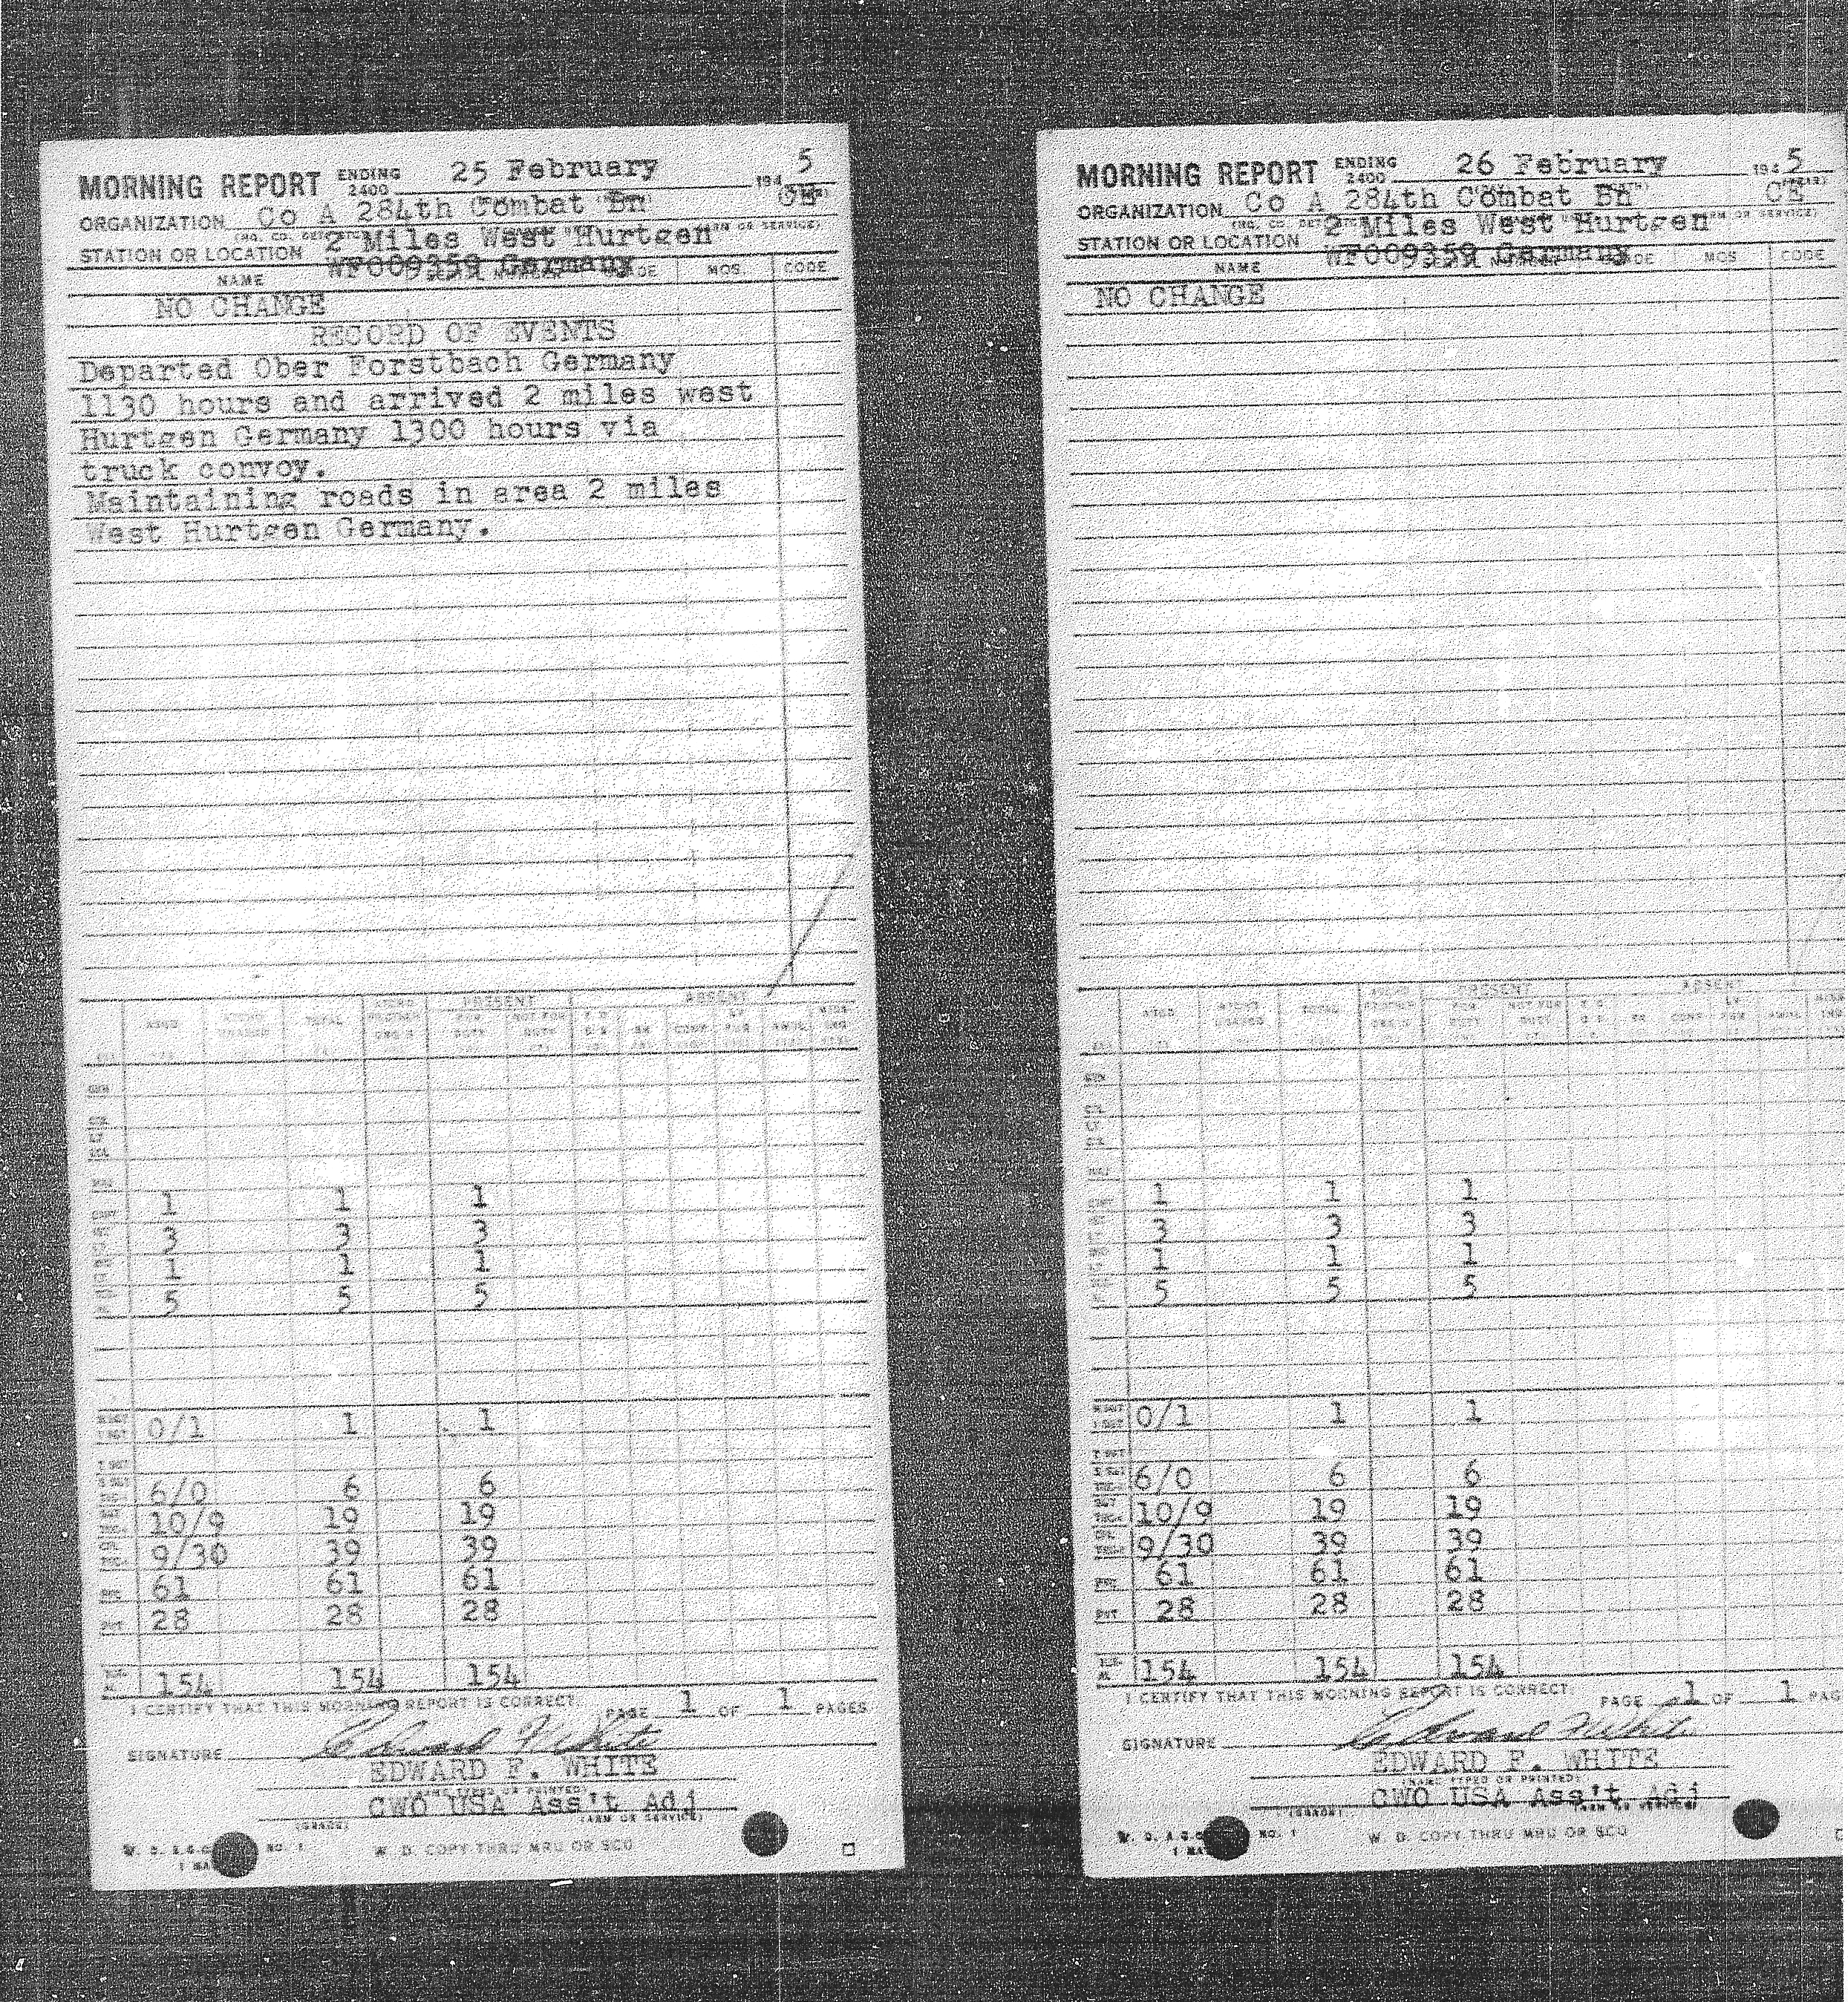 MORNING REPORT ENDING 2400 25 February 1945
ORGANIZATION Co A 284th Combat Bn CE
STATION OR LOCATION 2 Miles West Hurtgen
WF009359 Germany
NAME MOS. CODE
NO CHANGE
RECORD OF EVENTS
Departed Ober Forstbach Germany
1130 hours and arrived 2 miles west
Hurtgen Germany 1300 hours via
truck convoy.
Maintaining roads in area 2 miles
West Hurtgen Germany.
PRESENT ABSENT
TOTAL
1 1 1
3 3 3
1 1 1
5 5 5
0/1 1 1
6/0 6 6
10/9 19 19
9/30 39 39
61 61 61
28 28 28
154 154 154
I CERTIFY THAT THIS MORNING REPORT IS CORRECT.
PAGE 1 OF 1 PAGES
SIGNATURE Edward F White
EDWARD F. WHITE
(NAME TYPED OR PRINTED)
CWO USA Ass't Adj
(GRADE) (ARM OR SERVICE)
W. D. A.G.O. NO. 1
W. D. COPY THRU MRU OR SCO
MORNING REPORT ENDING 2400 26 February 1945
ORGANIZATION Co A 284th Combat Bn CE
STATION OR LOCATION 2 Miles West Hurtgen
WF009359 Germany
NAME MOS CODE
NO CHANGE
PRESENT ABSENT
1 1 1
3 3 3
1 1 1
5 5 5
0/1 1 1
6/0 6 6
10/9 19 19
9/30 39 39
61 61 61
28 28 28
154 154 154
I CERTIFY THAT THIS MORNING REPORT IS CORRECT.
PAGE 1 OF 1 PAG
SIGNATURE Edward F White
EDWARD F. WHITE
(NAME TYPED OR PRINTED)
CWO USA Ass't Adj
(GRADE) (ARM OR SERVICE)
W. D. A.G.O. NO. 1
W. D. COPY THRU MRU OR SCO